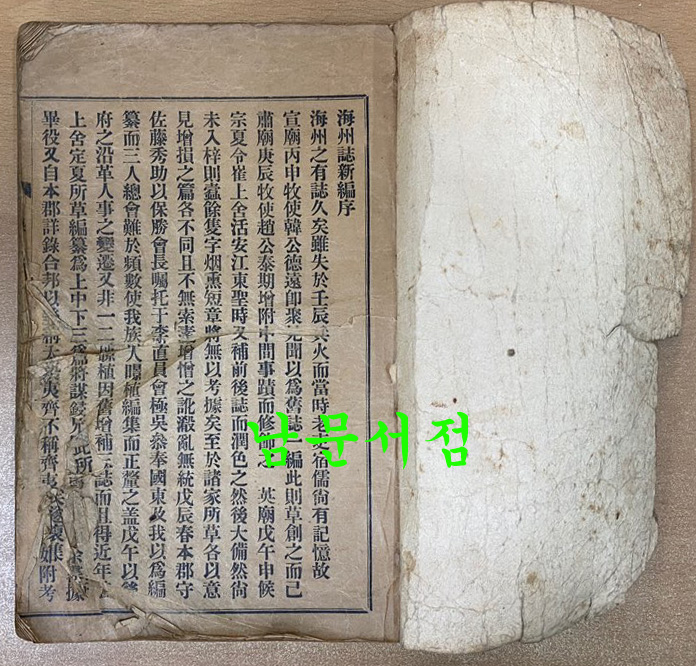 海州誌新編序
海州之有誌久矣雖失於壬辰兵火而當時老吏宿儒尙有記憶故
宣廟丙申牧使韓公德遠卽聚見聞以爲舊誌一編此則草創之而已
肅廟庚辰牧使趙公泰期增附中間事蹟而修飾之 英廟戊午申候
宗夏令崔上舍活安江東聖時又補前後誌而潤色之然後大備然尙
未入梓則蠹餘隻字烟熏短章將無以考據矣至於諸家所草各以意
見增損之篇各不同且不無索漏增憎之訛淆亂無統戊辰春本郡守
佐藤秀助以保勝會長囑托于李直員會極吳叅奉國東及我以爲編
纂而三人總會難於頻數使我族人㬎植編集而正釐之盖戊午以後
府之沿革人事之變遷又非一二㬎植因舊增補二誌而且得近年
上舍定夏所草編纂爲上中下三篇將謀鋟
畢役又自本郡詳錄合邦以 齊不稱齊 集如附考
남문서점